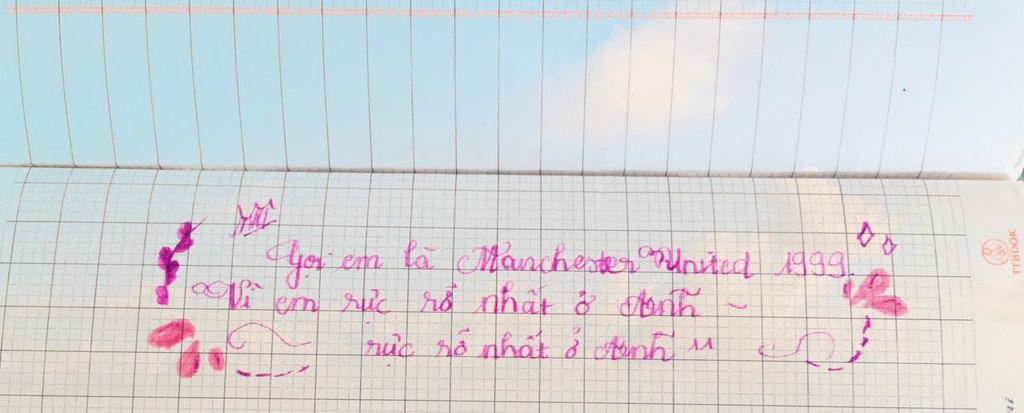 Gọi em là Manchester United 1999.
Vì em rực rỡ nhất ở ~
rực rỡ nhất ở
TTBOOK